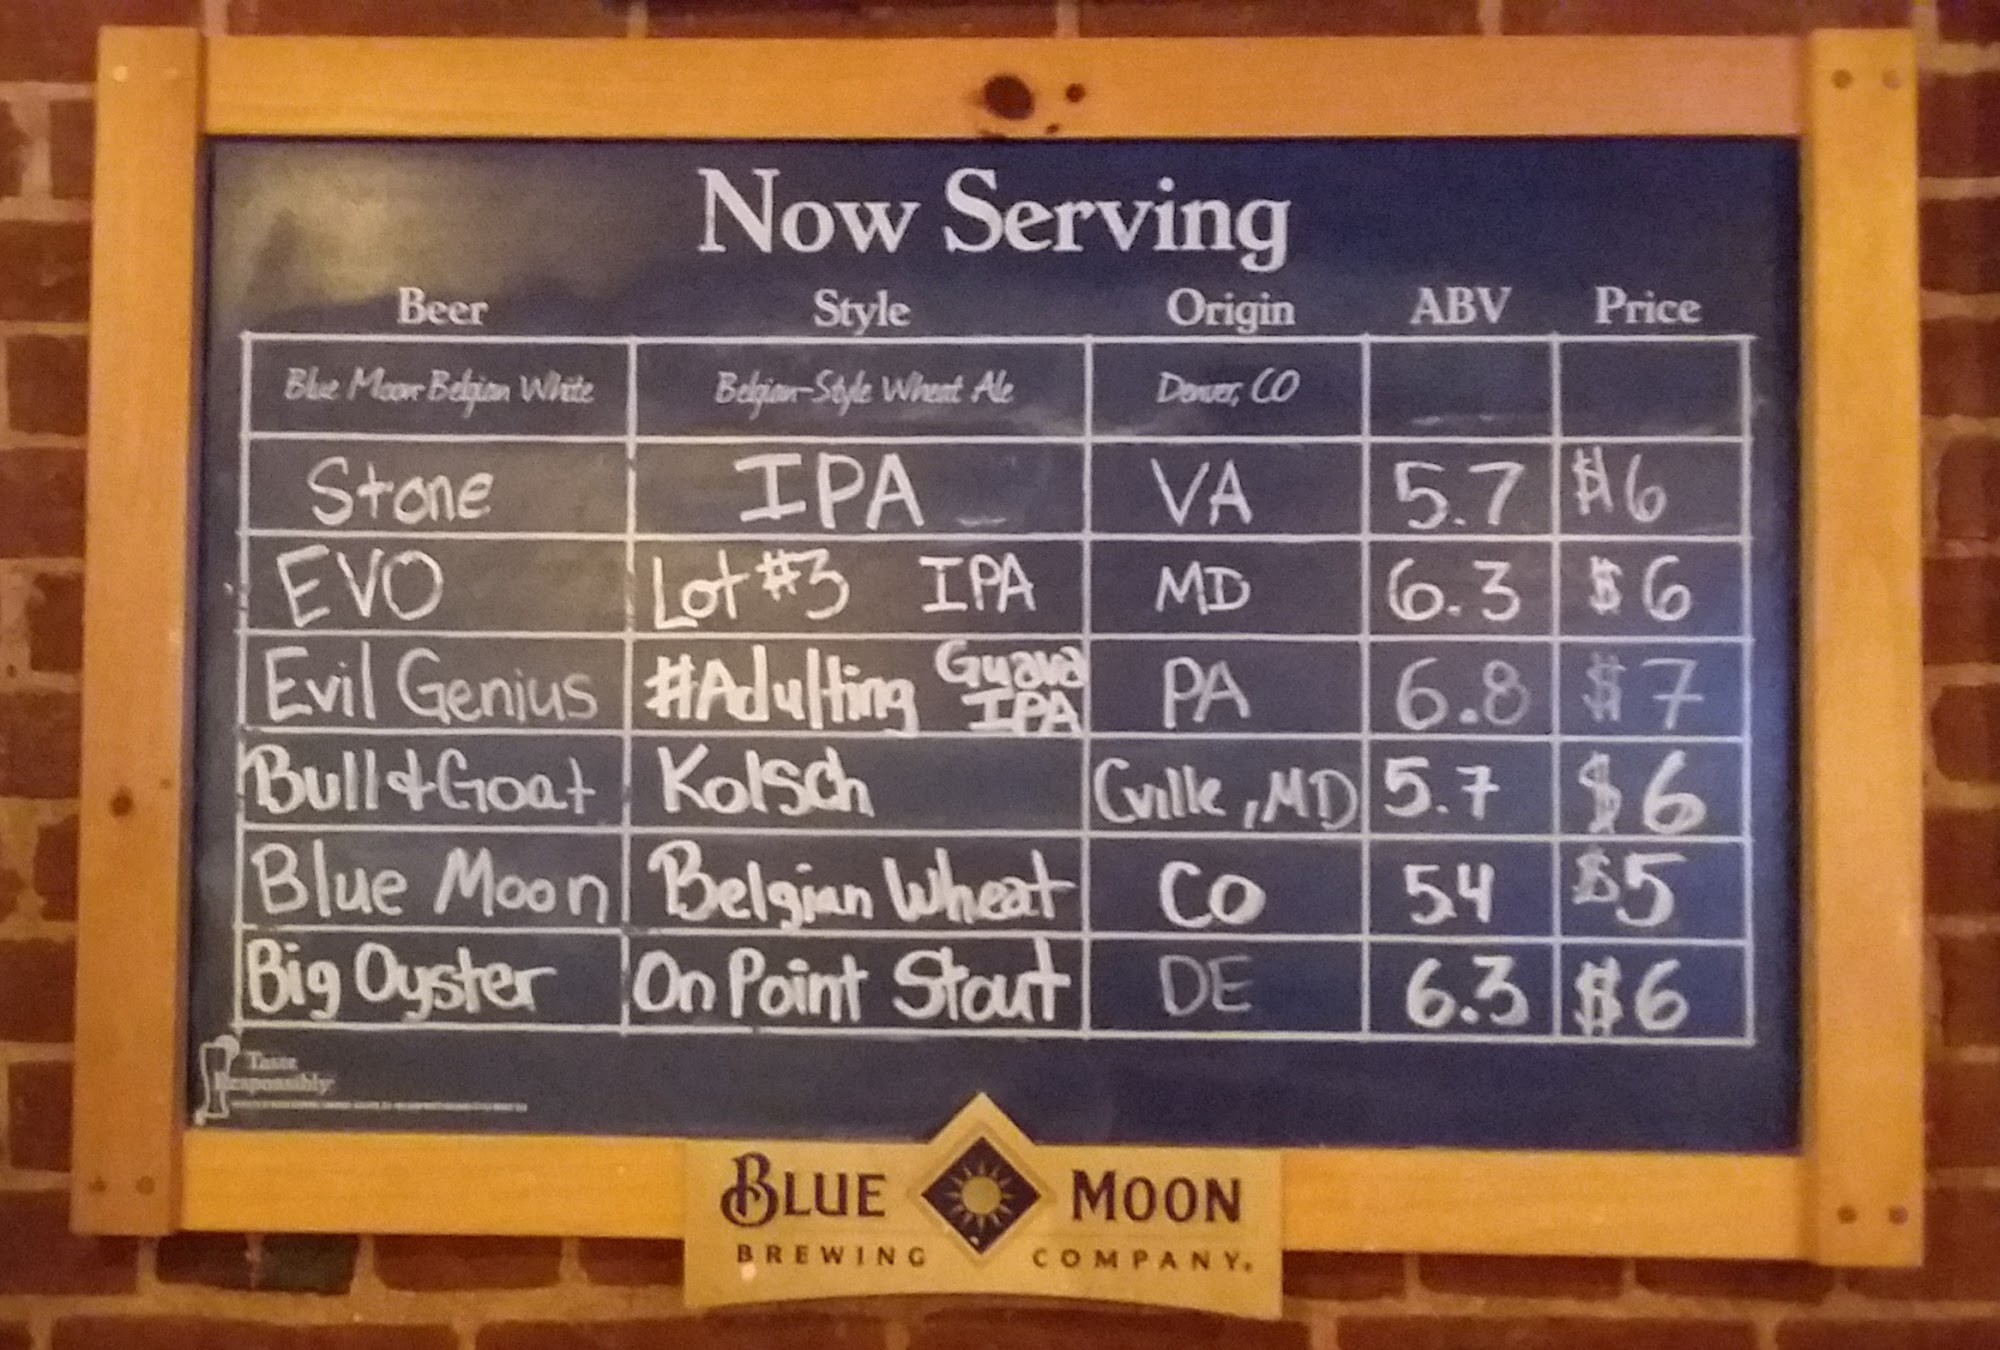 Now Serving
Beer Style Origin ABV Price
Blue Moon Belgian White Belgian-Style Wheat Ale Denver, CO
Stone IPA VA 5.7 $6
EVO Lot #3 IPA MD 6.3 $6
Evil Genius #Adulting Guava IPA PA 6.8 $7
Bull & Goat Kolsch Cville, MD 5.7 $6
Blue Moon Belgian Wheat CO 5.4 $5
Big Oyster On Point Stout DE 6.3 $6
Taste
Responsibly
BLUE MOON
BREWING COMPANY